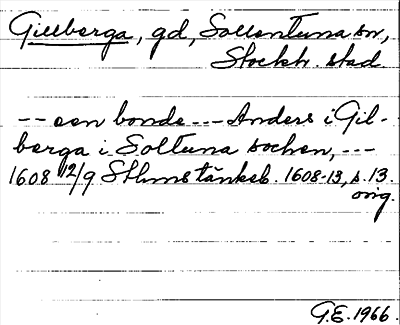 Gillberga, gd, Sollentuna sn,
Stockh. stad
-- een bonde --- Anders i Gil-
berga i Soltuna sochen, ---
1608 12/9 Sthms tänkeb. 1608-13, s. 13.
orig.
G.E. 1966.